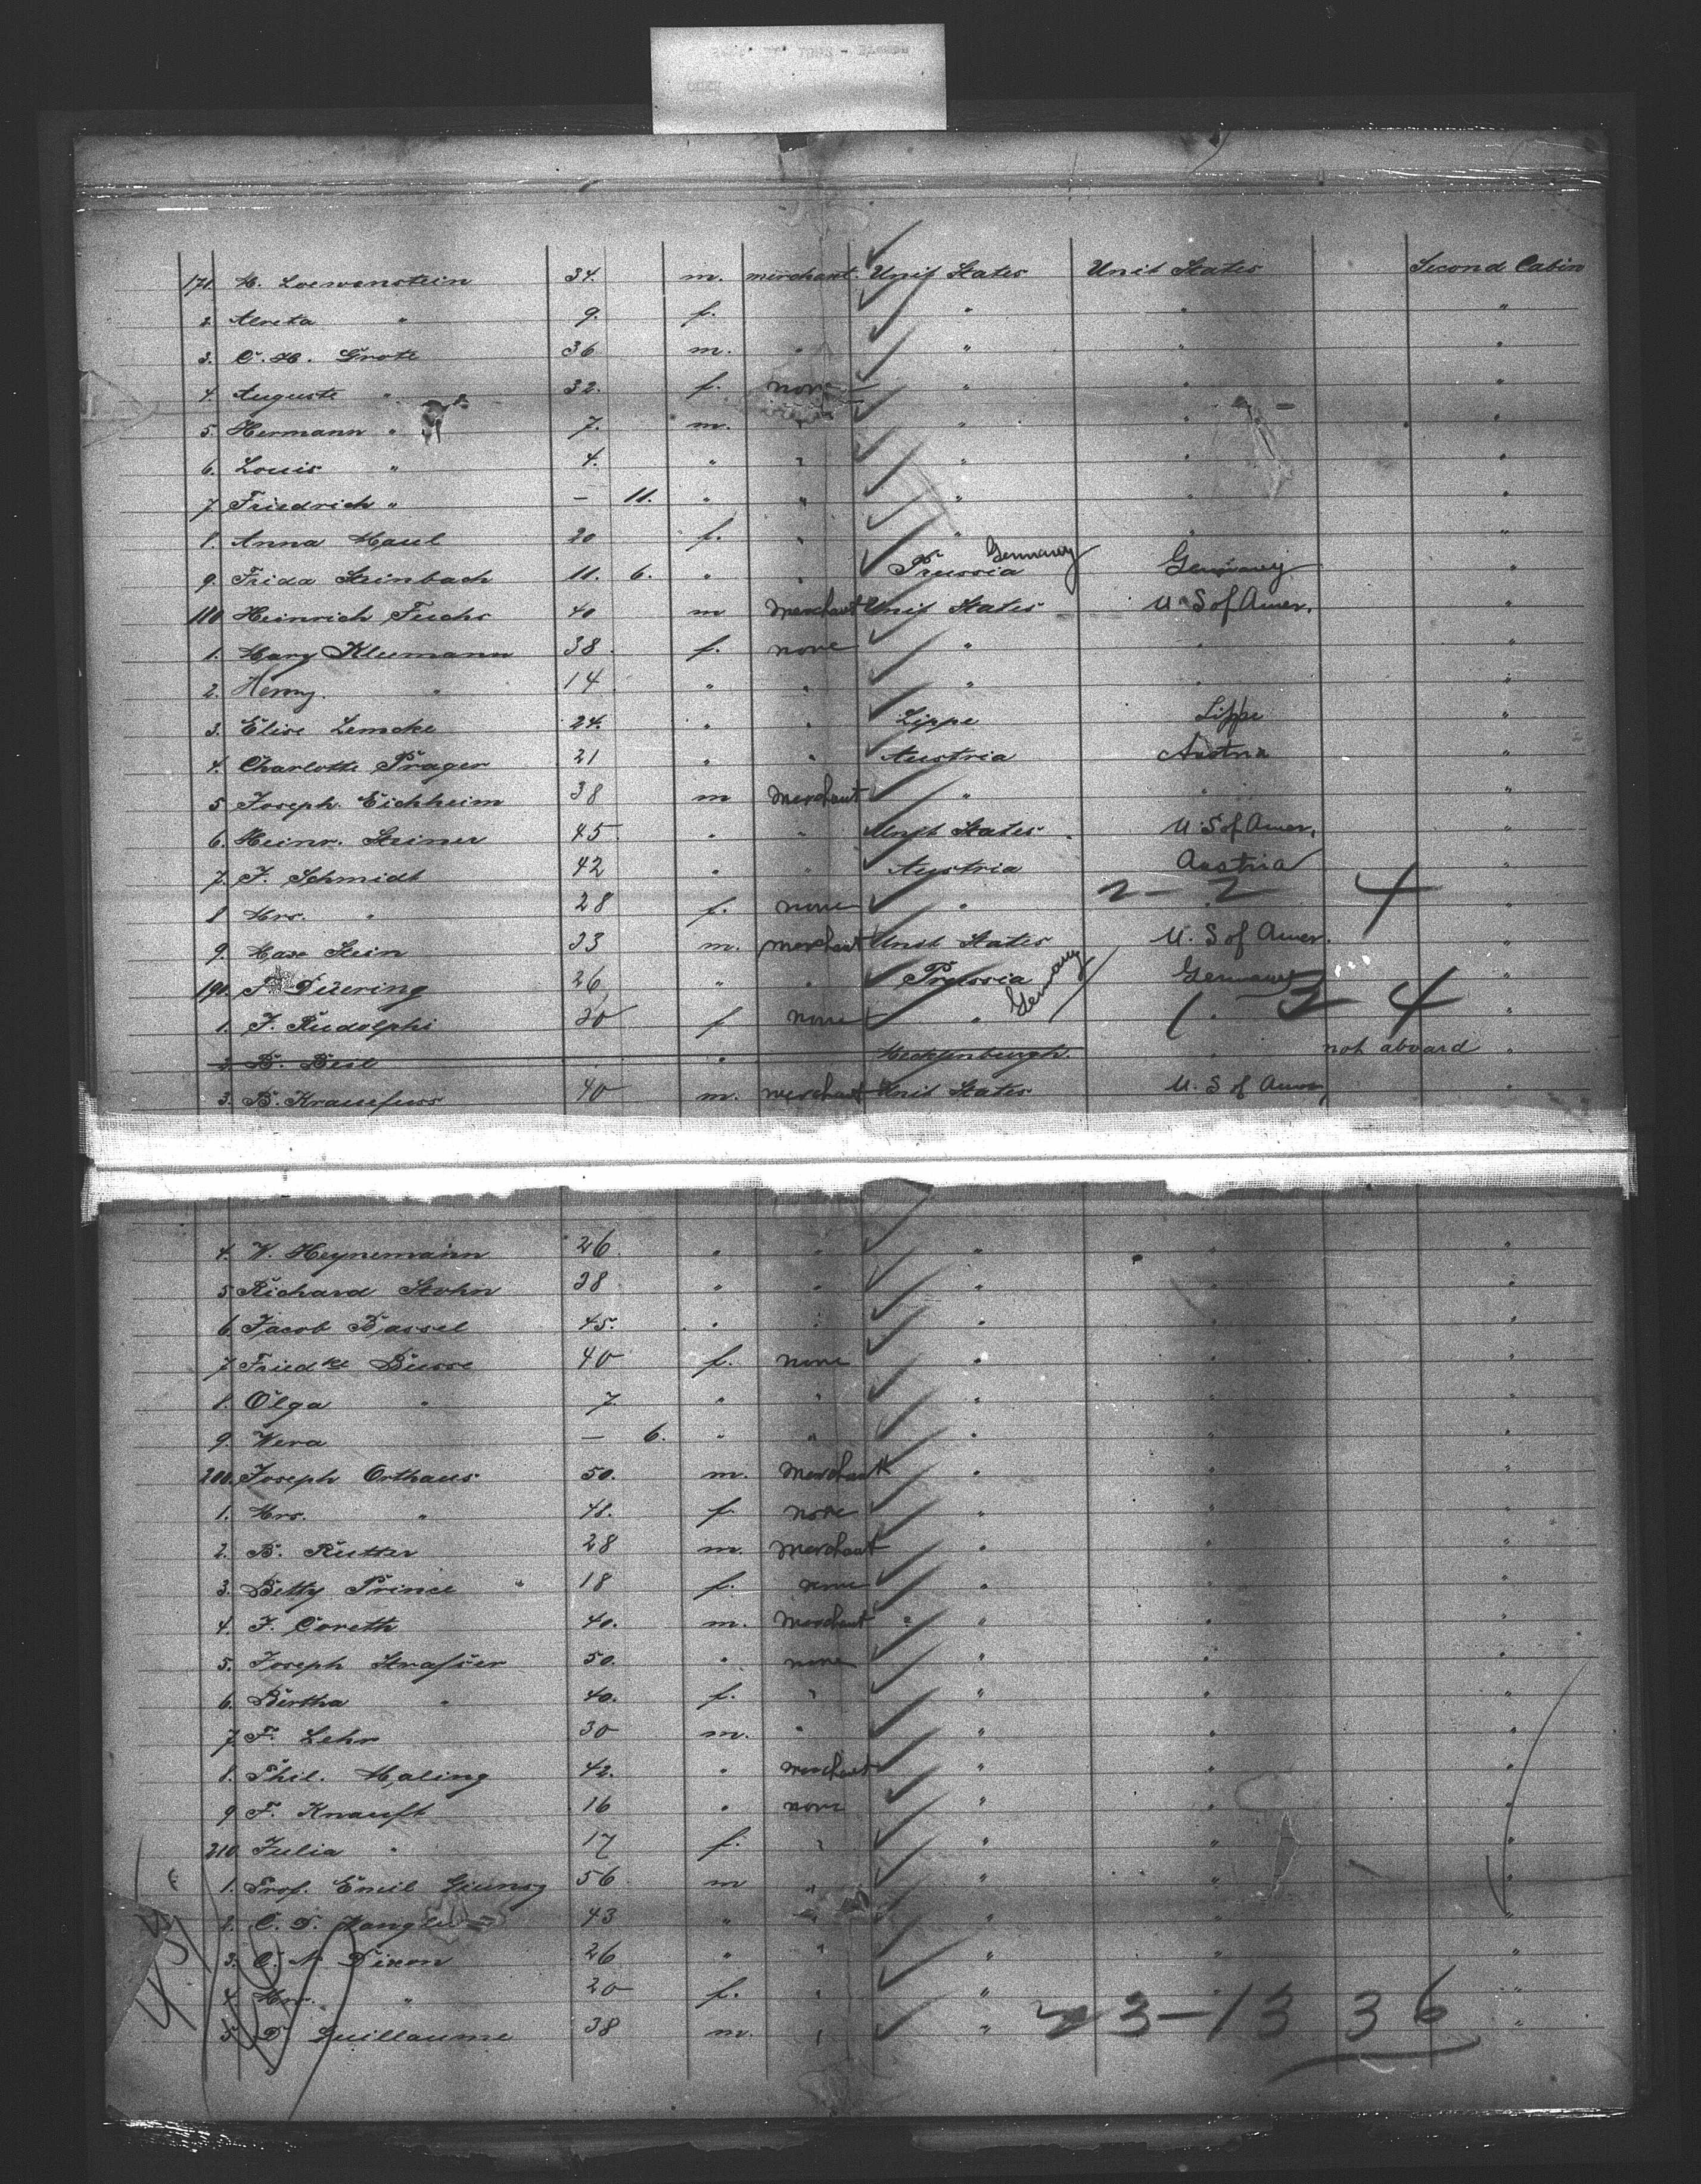 171. M. Loewenstein 34. m. merchant. Unit States Unit States Second Cabin
2. " 9. f. " " "
3. C. H. Grote 36 m. " " " "
4. Auguste " 32. f. none " " "
5. Hermann " 7. m. " " " "
6. Louis " 4. " " " " "
7 Friedrich " — 11. " " " " "
8. Anna Haul 20 f. " " " "
9. Frida Steinbach 11. 6. " " Prussia Germany Germany "
110 Heinrich Fuchs 40 m Merchant Unit States U S of Amer. "
1. Mary Kleemann 38. f. none " " "
2. Henny. " 14 " " " " "
3. Elise Lemcke 24. " " Lippe Lippe "
4. Charlotte Prager 21 " " Austria Austria "
5 Joseph Eichheim 38 m Merchant " " "
6. Heinr. Steiner 45. " " Unit States U S of Amer. "
7. F. Schmidt 42 " " Austria Austria "
2 - 2 4
8 Mrs. " 28 f. none " " "
9. Max Stein 33 m. merchant Unit States U. S of Amer. "
190. Duering 26 " " Prussia Germany Germany "
1. F. Rudolphi 20 f none " " "
1 3 4
2. B. Beil " Mecklenburgh. " not aboard "
3. B. Kraufuss 40 m. merchant Unit States U. S of Amer, "
4. W. Heynemann 26. " " " " "
5 Richard Stohn 28 " " " " "
6. Jacob Bassel 45. " " " " "
7 Friedke Busse 40 f. none " " "
8. Olga " 7. " " " " "
9. Wera — 6. " " " " "
200. Joseph Orthaus 50. m. Merchant " " "
1. Mrs. " 48. f. none " " "
2. B. Rutter 28 m. Merchant " " "
3. Betty Prince 18 f. none " " "
4. F. Coreth 40. m. Merchant " " "
5. Joseph Strasser 50. " none " " "
6. Bertha " 40. f. " " " "
7 F. Lehr 30 m. " " " "
8. Phil. Maling 42. " merchant " " "
9 F. Knauft 16 " none " " "
210 Julia " 17 f. " " " "
1. Prof. Emil 56 m " " " "
2. C. 43 " " " " "
3. C. N. Dixon 26 " " " " "
4. Mrs. " 20 f. " " " "
23-13 36
5. Guillaume 38 m. " " "